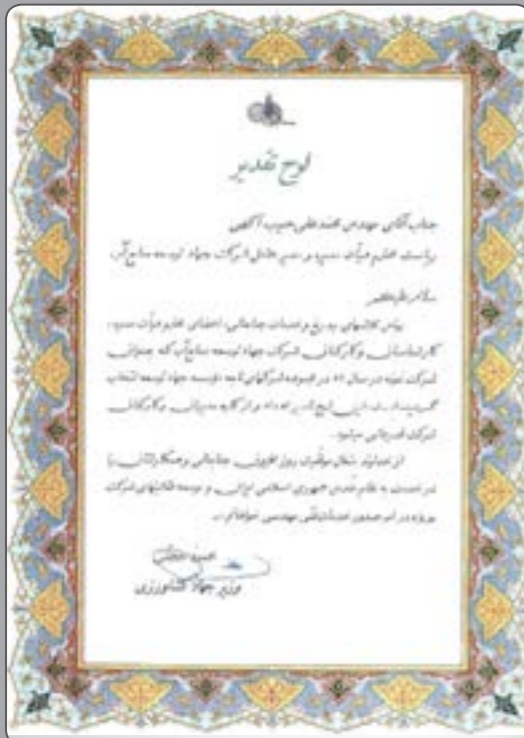 لوح تقدیر
جناب آقای مهندس محمدعلی حبیب
ریاست محترم هیأت مدیره و مدیر عامل شرکت جهاد توسعه منابع آب
سلام علیکم
بپاس تلاشهای بیدریغ و خدمات جنابعالی، اعضای محترم هیأت مدیره،
کارشناسان و کارکنان شرکت جهاد توسعه منابع آب که بعنوان
شرکت نمونه در سال در مجموعه شرکتهای تابعه مؤسسه جهاد توسعه انتخاب
گردیده است، این لوح تقدیر اهداء و از کلیه مدیران و کارکنان
شرکت قدردانی میشود.
از خداوند متعال موفقیت روز افزون جنابعالی و همکارانتان را
در خدمت به نظام مقدس جمهوری اسلامی ایران و توسعه فعالیتهای شرکت
بویژه در امر صدور خدمات فنی مهندسی خواهانم.
وزیر جهاد کشاورزی